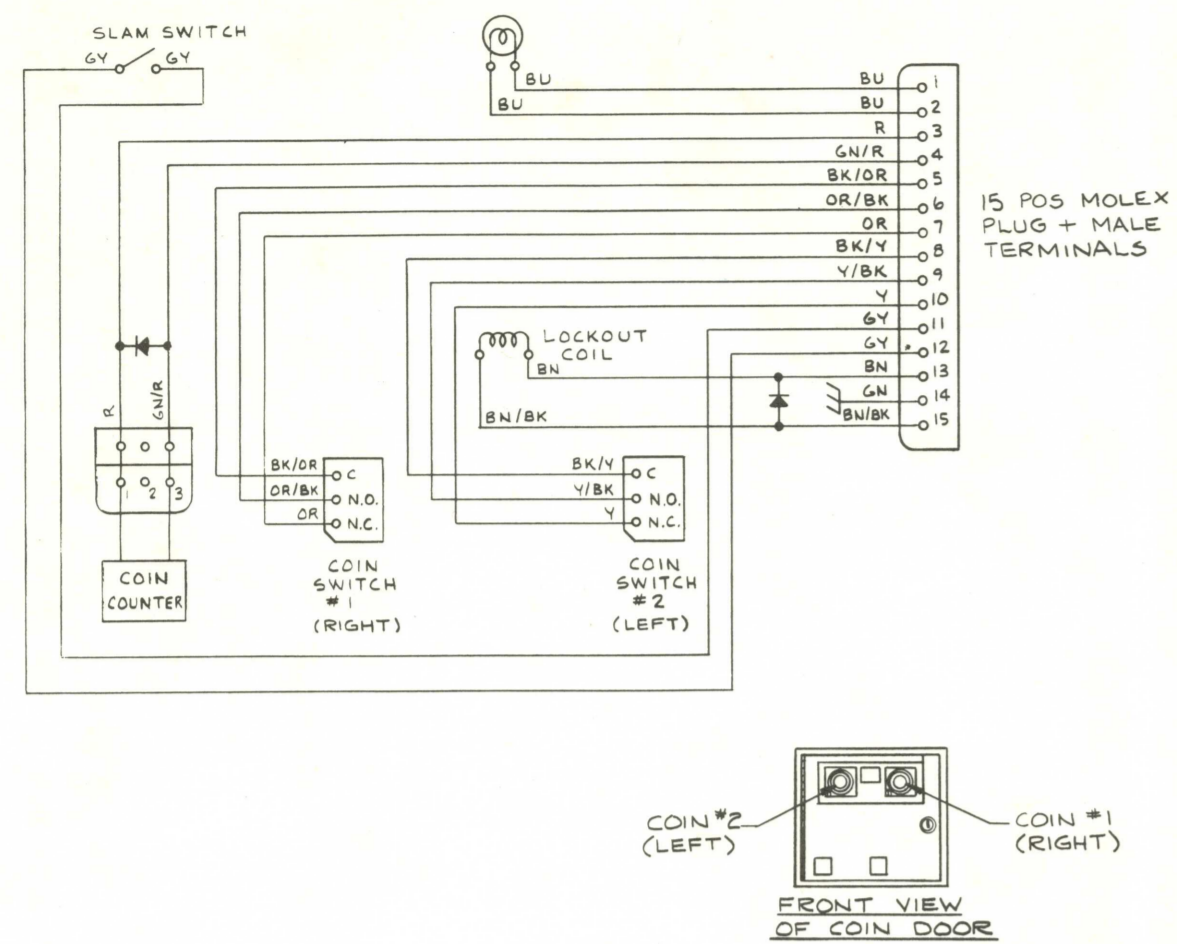 SLAM SWITCH
GY GY
BU BU 1
BU BU 2
R 3
GN/R 4
BK/OR 5
OR/BK 6
OR 7
BK/Y 8
Y/BK 9
Y 10
GY 11
GY 12
BN 13
GN 14
BN/BK 15
15 POS MOLEX
PLUG + MALE
TERMINALS
LOCKOUT
COIL
BN
BN/BK
R GN/R
1 2 3
COIN
COUNTER
BK/OR C
OR/BK N.O.
OR N.C.
COIN
SWITCH
# 1
(RIGHT)
BK/Y C
Y/BK N.O.
Y N.C.
COIN
SWITCH
#2
(LEFT)
COIN #2
(LEFT)
COIN #1
(RIGHT)
FRONT VIEW
OF COIN DOOR